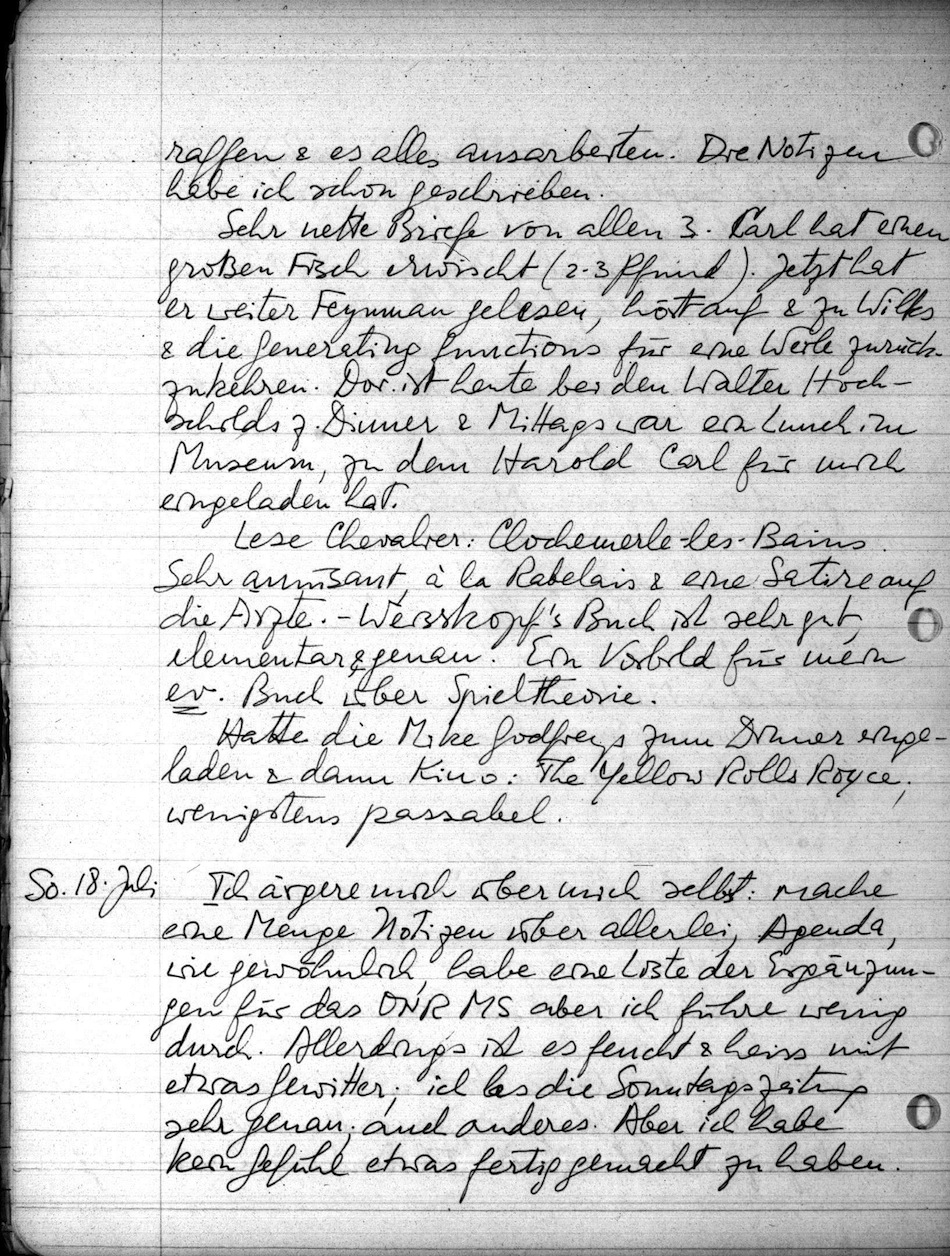 raffen & es alles ausarbeiten. Die Notizen
habe ich schon geschrieben.
Sehr nette Briefe von allen 3. Carl hat einen
großen Fisch erwischt (2-3 Pfund). Jetzt hat
er weiter Feynman gelesen, hört auf & zu Wilks
& die generating functions für eine Weile zurück-
zukehren. Dor. ist heute bei den Walter Hoch-
schilds z. Dinner & Mittags war ein Lunch im
Museum, zu dem Harold Carl für mich
eingeladen hat.
Lese Chevalier: Clochemerle-les-Bains.
Sehr amüsant, à la Rabelais & eine Satire auf
die Ärzte. - Weisskopf's Buch ist sehr gut,
elementar & genau. Ein Vorbild für mein
ev. Buch über Spieltheorie.
Hatte die Mike Godfreys zum Dinner einge-
laden & dann Kino: The Yellow Rolls Royce,
wenigstens passabel.
So. 18. Juli Ich ärgere mich über mich selbst: mache
eine Menge Notizen über allerlei, Agenda,
wie gewöhnlich, habe eine Liste der Ergänzun-
gen für das ONR MS aber ich führe wenig
durch. Allerdings ist es feucht & heiss mit
etwas Gewitter; ich las die Sonntagszeitung
sehr genau, auch anderes. Aber ich habe
kein Gefühl etwas fertig gemacht zu haben.